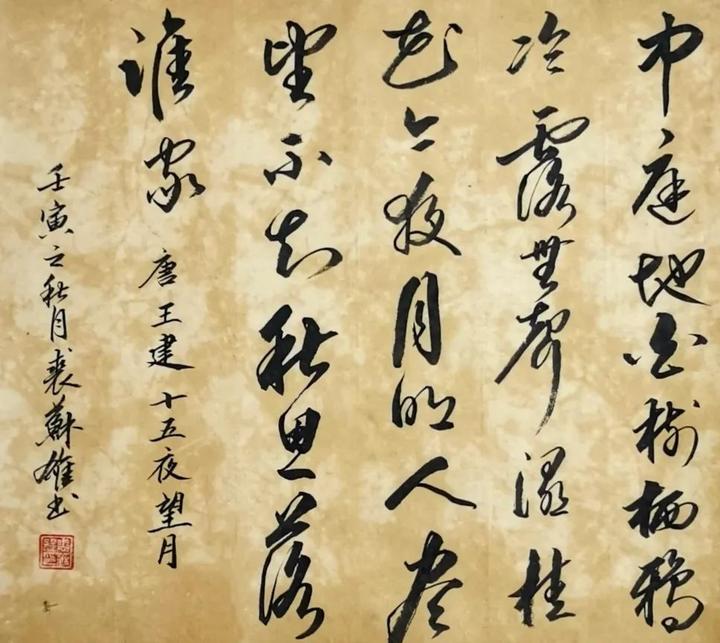 中庭地白樹栖鴉
冷露無聲濕桂
花今夜月明人盡
望不知秋思落
誰家 唐王建十五夜望月
壬寅之秋月裘蘇雄書